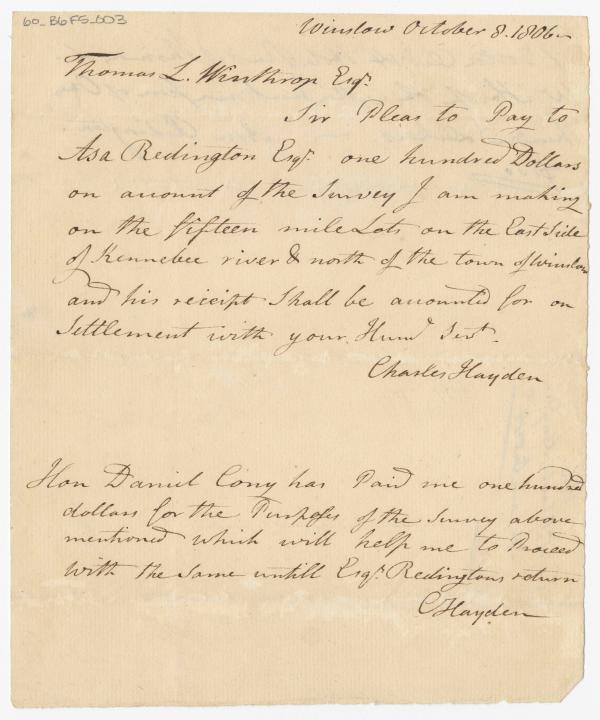 60_B6F5_003
Winslow October 8. 1806
Thomas L. Winthrop Esqr.
Sir Pleas to Pay to
Asa Redington Esqr. one hundred Dollars
on account of the Survey I am making
on the fifteen mile Lots on the East Side
of Kennebec river & north of the town of Winslow
and his receipt Shall be accounted for on
Settlement with your Humd Servt.
Charles Hayden
Hon Daniel Cony has Paid me one hundred
dollars for the Purposes of the Survey above
mentioned which will help me to Proceed
with the same untill Esqr. Redingtons return
C Hayden